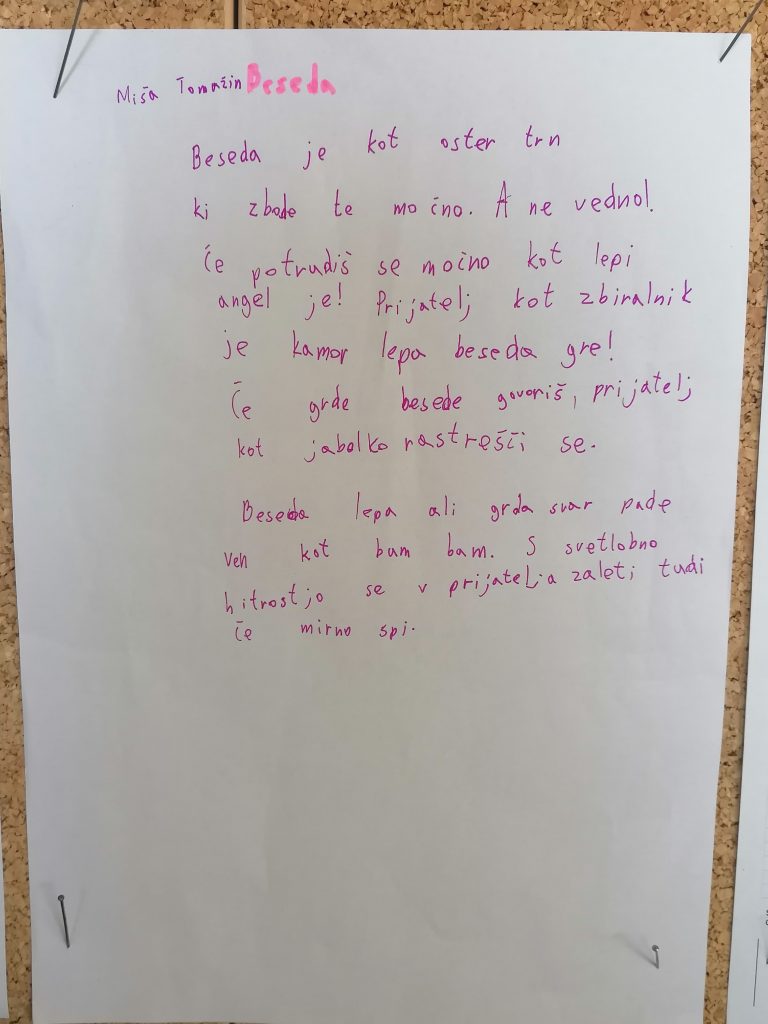 Miša Tomažin Beseda
Beseda je kot oster trn
ki zbode te močno. A ne vedno!
Če potrudiš se močno kot lepi
angel je! Prijatelj kot zbiralnik
je kamor lepa beseda gre!
Če grde besede govoriš, prijatelj
kot jabolko rastrešči se.
Beseda lepa ali grda svar pade
ven kot bum bam. S svetlobno
hitrostjo se v prijatelja zaleti tudi
če mirno spi.